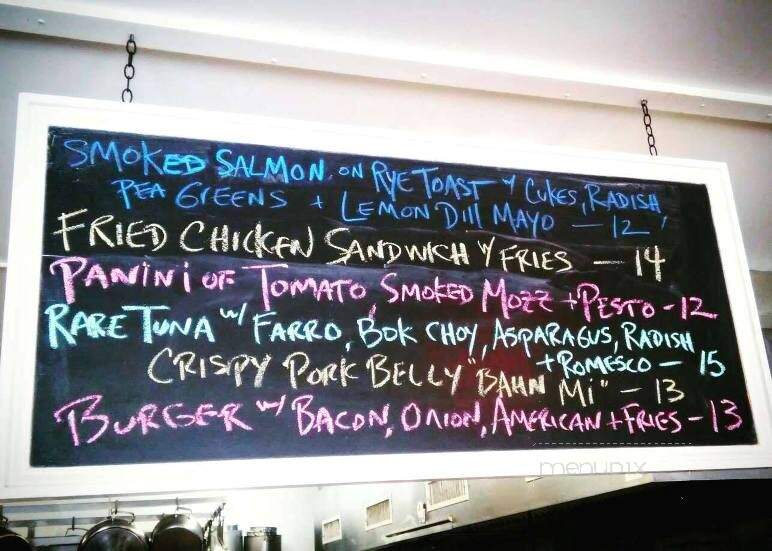 SMOKED SALMON ON RYE TOAST W/ CUKES, RADISH,
PEA GREENS + LEMON Dill MAYO - 12
FRIED CHICKEN SANDWICH W/ FRIES - 14
PANINI OF TOMATO, SMOKED MOZZ + PESTO - 12
RARE TUNA W/ FARRO, BOK CHOY, ASPARAGUS, RADISH
+ ROMESCO - 15
CRISPY PORK BELLY "BAHN Mi" - 13
BURGER W/ BACON, ONION, AMERICAN + FRIES - 13
menupix